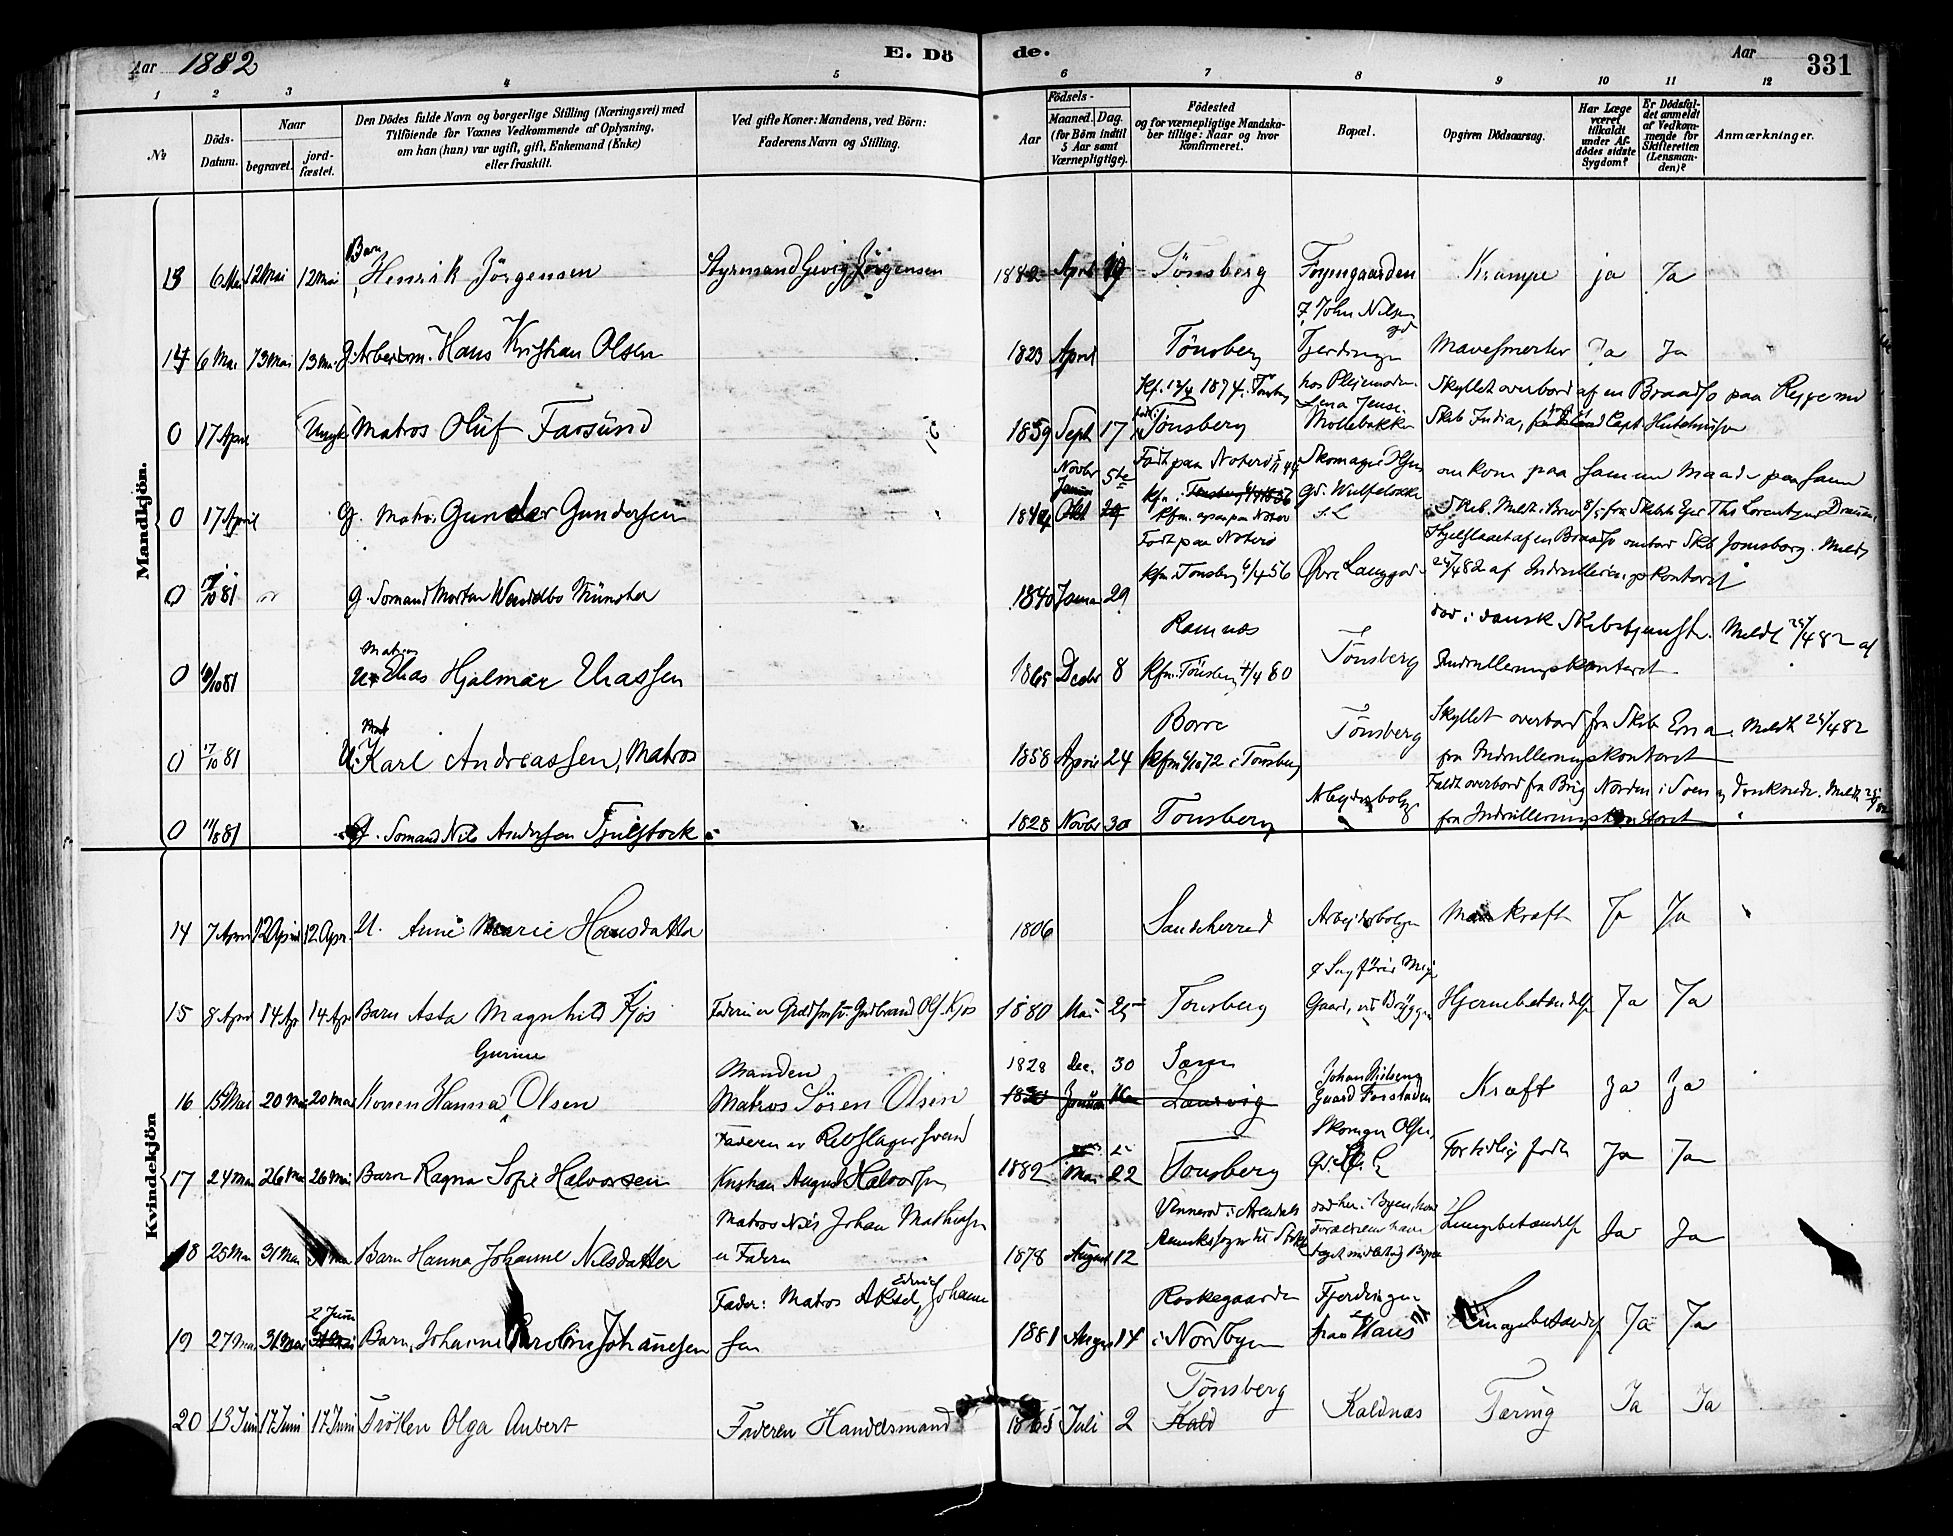 Aar 1882
E. Dö de.
Aar 331
1 2 3 4 5 6 7 8 9 10 11 12
№
Döds-Datum.
Naar
begravet.
jordfæstet.
Den Dödes fulde Navn og borgerlige Stilling (Næringsvei) med
Tilföiende for Voxnes Vedkommende af Oplysning,
om han (hun) var ugift, gift, Enkemand (Enke)
eller fraskilt.
Ved gifte Koner: Mandens, ved Börn:
Faderens Navn og Stilling.
Födsels-
Aar
Maaned. Dag.
(for Börn indtil
5 Aar samt
Værnepligtige).
Födested
og for værnepligtige Mandskaber tillige: Naar og hvor
Konfirmeret.
Bopæl.
Opgiven Dödsaarsag.
Har Læge
været
tilkaldt
under Afdödes sidste
Sygdom?
Er Dödsfaldet anmeldt
af Vedkommende for
Skifteretten
(Lensmanden)?
Anmærkninger.
Mandkjön.
13 6 Mai 12 Mai 12 Mai Barn Henrik Jörgensen Styrmand Jörgensen 1882 April 19 Tönsberg Foyngaarden Krampe ja Ja
14 6 Mai 13 Mai 13 Mai g. Arbeidsm. Hans Kristian Olsen 1823 April Tönsberg John Nilsens gd Fjerdingen Mavesmerter Ja Ja
0 17 April Ungk. Matros Oluf Farsund 1859 Sept 17 Kf. 12/4 1874 i Tönsberg Tönsberg hos Plejemoder Lena Jens. Möllebakken Skyllet overbord af en Braadsö paa Rejse med
Skib India, Capt. Hutchinson
0 17 April g. Matr. Gunder Gundersen 1844 Novbr 5te Født paa Noterö Skomager gd. omkom paa samme Maade paa samme
Skib. Meldt i Brev 8/5 fra Skibets Ejer Ths Lorentzen Drammen
0 17/10 81 g. Sömand Morten Wendelbo Münster 1840 Januar 29 Født paa Noterö kfm. Tönsberg 6/4 56 Øvre Langgade Ihjelslaaet af en Braadsö ombord Skb Jomsborg. Meldt
25/4 82 af Indrulleringskontoret
0 9/10 81 U. Matros Elias Hjalmar Eliassen 1865 Decbr 8 Ramnæs kfm. Tönsberg 4/4 80 Tönsberg död i dansk Skibstjeneste. Meldt 25/4 82 af
Indrulleringskontoret
0 17/10 81 U. Karl Andreassen, Matros 1858 April 24 Borre kfm 6/10 72 i Tönsberg Tönsberg Skyllet overbord fra Skib Erna. Meldt 25/4 82
fra Indrulleringskontoret
0 11/8 81 g. Sömand Nils Andersen Fjelstock 1828 Novbr 30 Tönsberg Arbejderbolig Faldt overbord fra Brig Norden i Söen og druknede. Meldt 25/4 82
fra Indrulleringskontoret
Kvindekjön
14 7 April 12 April 12 Apr. U. Anne Marie Hansdatter 1806 Sandeherred Arbejderboligen Mavekræft Ja Ja
15 8 April 14 Apr 14 Apr Barn Asta Magnhild Kjös Faderen er Guldsmsv. Gudbrand Ols. Kjös 1880 Mai 25 Tönsberg Sagförer Gaard, ved Bryggen Hjernebetændelse Ja Ja
16 15 Mai 20 Mai 20 Mai Konen Hanna Gurine Olsen Manden Matros Sören Olsen 1828 Dec. 30 Sæm Laurvig Johan Nielsens Gaard Farstaden Kræft Ja Ja
17 24 Mai 26 Mai 26 Mai Barn Ragna Sofie Halvorsen Faderen er Rebslagersvend Kristian August Halvorsen 1882 Mai 22 Tönsberg Skomager Olsen, For tidlig födt Ja Ja
18 28 Mai 31 Mai 31 Mai Barn Hanna Johanne Nilsdatter Matros Nils Johan Mathiasen er Faderen 1878 August 12 död her i Byen, hvor Forældrene have taget midlertidig Bopæl Lungebetændelse Ja Ja
19 27 Mai 31 Mai 2 Juni Barn Johanne Caroline Johannessen Fader: Matros Aksel Edvard Johannessen 1881 August 14 Roskegaarden i Nordbyen Fjerdingen Lungebetændelse Ja Ja
20 13 Juni 17 Juni 17 Juni Fröken Olga Aubert Faderen Handelsmand 1865 Juli 2 Tönsberg Kald Kaldnæs Tæring Ja Ja